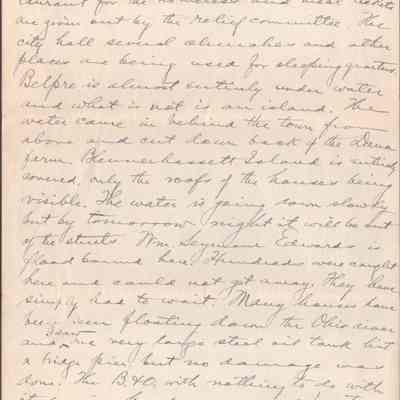 taurant for the homeless and meal tickets
are given out by the relief committee. The
city hall several churches and other
places are being used for sleeping quarters.
Belpre is almost entirely under water
and what is not is an island. The
water came in behind the town from
above and cut down back of the Dana
farm. Blennerhassett Island is entirely
covered, only the roofs of the houses being
visible. The water is going down slowly
but by tomorrow night it will be out
of the streets. Wm. Seymour Edwards is
flood bound here. Hundreds were caught
here and could not get away. They have
simply had to wait. Many houses have
been seen floating down the Ohio river
and one very large steel oil tank hit
a bridge pier but no damage was
done. The B.&O. with nothing to do with